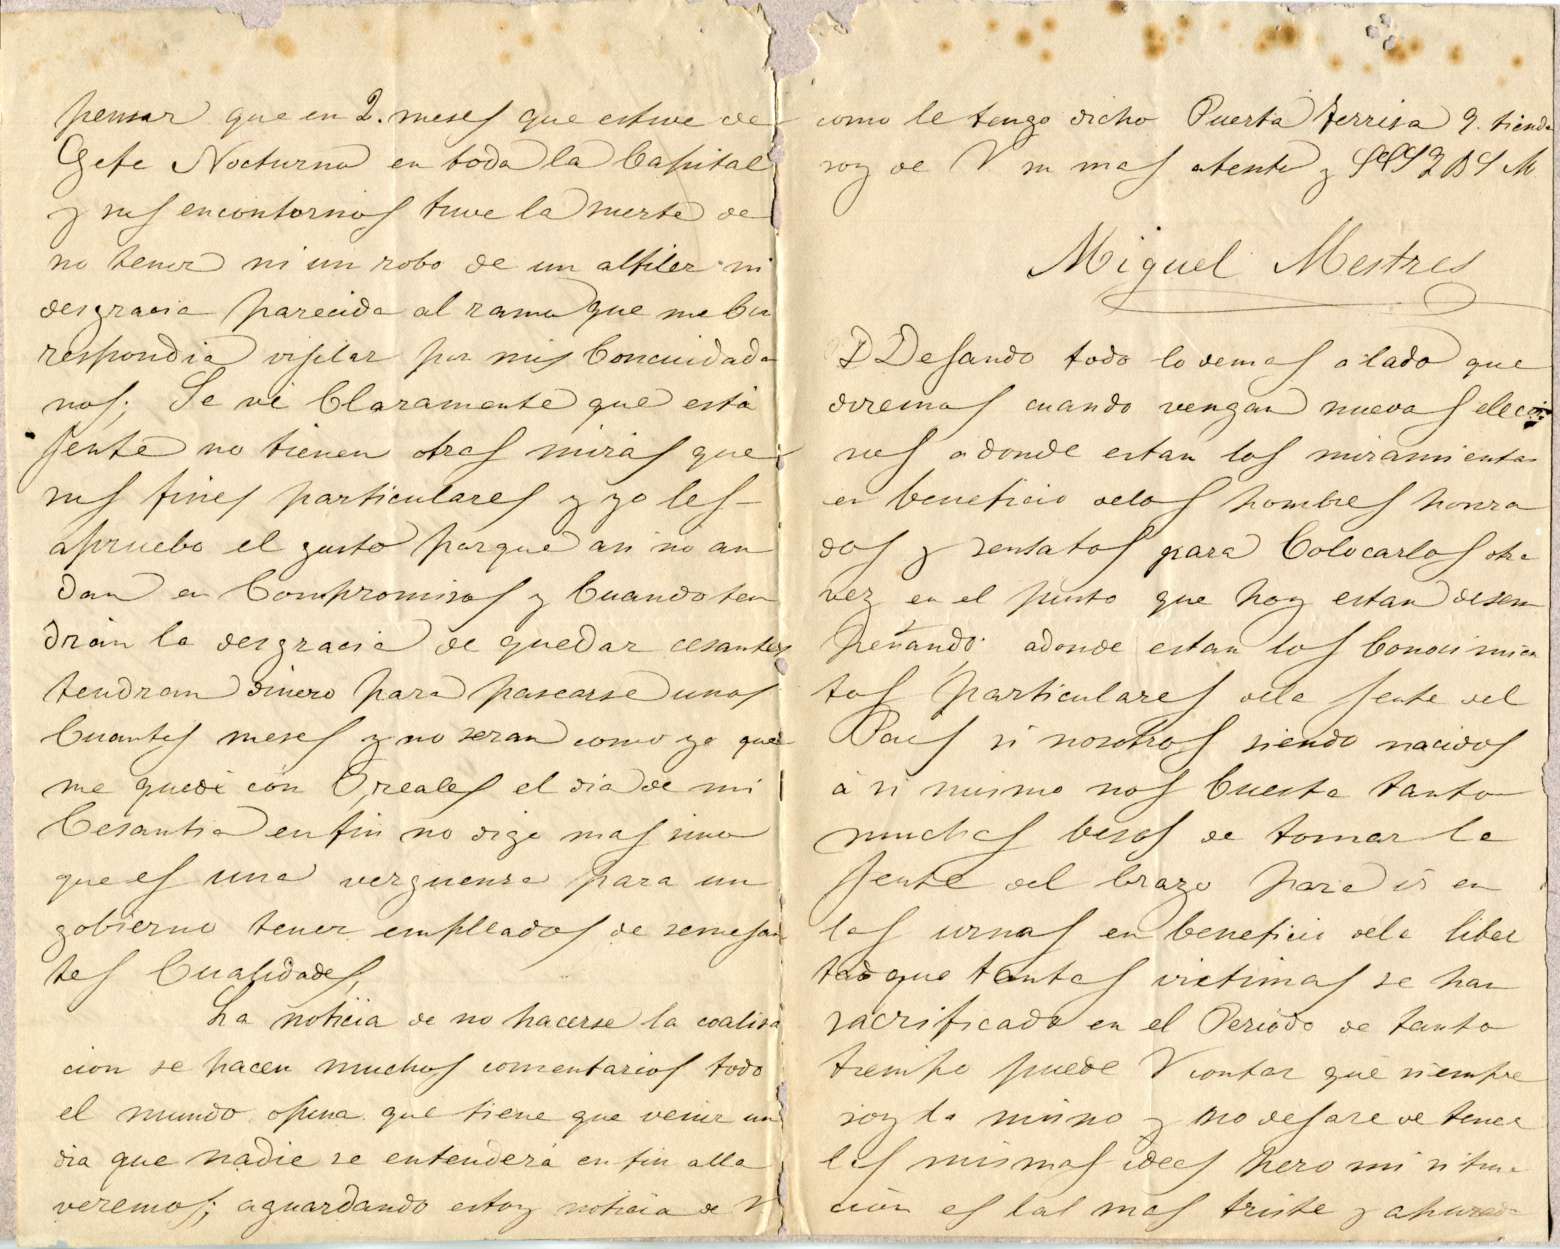 pensar que en 2. meses que estuve de
Gefe Nocturno en toda la Capital
y sus encontornos tuve la suerte de
no tener ni un robo de un alfiler ni
desgracia parecida al ramo que me Co
respondia vijilar por mis Conciudada
nos; Se vé Claramente que está
jente no tienen otras miras que
sus fines particulares y yo les
apruebo el gusto porque asi no an
dan en Compromisos y Cuando ten
drán la desgracia de quedar cesantes
tendran dinero para pasearse unos
Cuantos meses y no seran como yo que
me quedé con reales el dia de mi
Cesantia en fin no digo mas sino
que es una verguensa para un
gobierno tener empleados de semejan
tes Cualidades,
La noticia de no hacerse la coalisa
cion se hacen muchos comentarios todo
el mundo opina que tiene que venir un
dia que nadie se entenderá en fin alla
veremos; aguardando estoy noticia de V
como le tengo dicho Puerta Ferrisa 9. tienda
soy de V su mas atento y SSS Q B S M
Miguel Mestres
P D Dejando todo lo demas alado que
diremos cuando vengan nuevas eleccio
nes adonde estan los miramientos
en beneficio delos hombres honra
dos y sensatos para Colocarlos otra
vez en el punto que hoy estan desem
peñando. adonde estan los Conocimien
tos particulares dela jente del
Pais si nosotros siendo nacidos
á si mismo nos Cuesta tanto
muchas beses de tomar la
jente del brazo para ir en
las urnas en beneficio dela liber
tad que tantas victimas se han
sacrificado en el Periodo de tanto
tiempo puede V contar que siempre
soy lo mismo y no dejare de tener
las mismas ideas pero mi situa
ción es tal mas triste y apurada